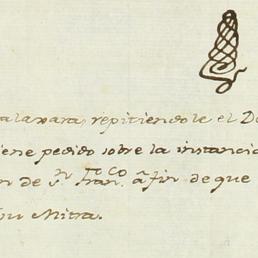 alaxara, repitiendole el D
iene pedido sobre la instancia
n de S.n Fran.co a fin de que
su Mitra.